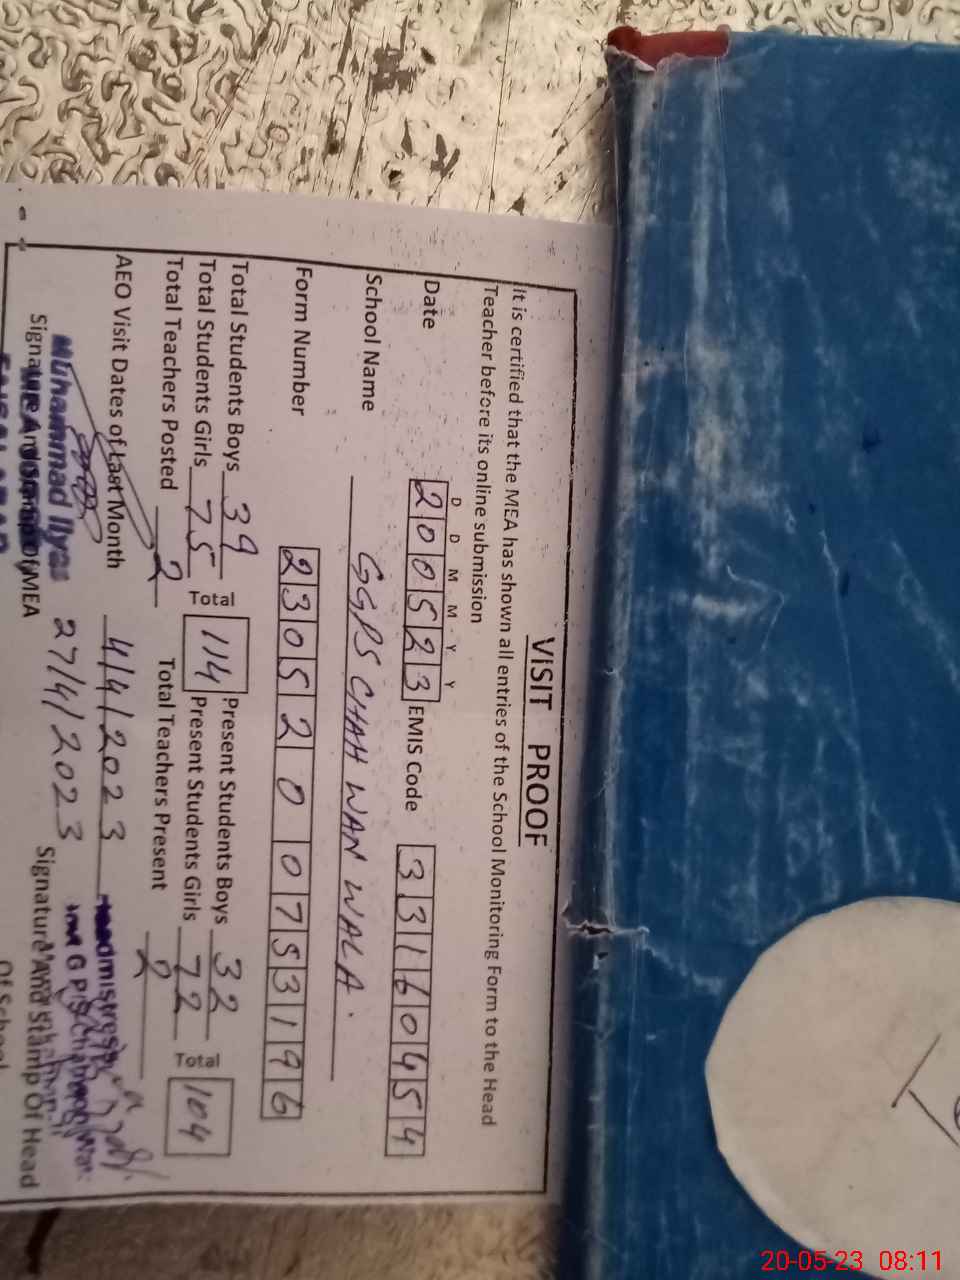 VISIT PROOF
It is certified that the MEA has shown all entries of the School Monitoring Form to the Head
Teacher before its online submission
D D M M Y Y
Date 200523 EMIS Code 33160454
School Name GGPS CHAH WAN WALA.
Form Number 2305200753196
Total Students Boys 39 Present Students Boys 32
Total 114 Total 104
Total Students Girls 75 Present Students Girls 72
Total Teachers Posted 2 Total Teachers Present 2
AEO Visit Dates of Last Month 4/4/2023
27/4/2023
Muhammad Ilyas
Signature And Stamp Of MEA Signature And Stamp Of Head
Of School
T
20-05-23 08:11